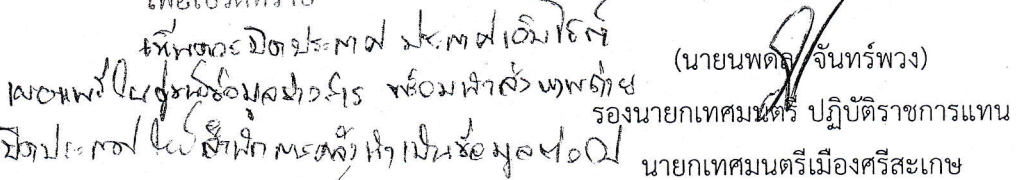 เห็นควรปิดประกาศ ประกาศเว็บไซต์
เผยแพร่ในศูนย์ข้อมูลข่าวสาร พร้อมนำส่งภาพถ่าย
ปิดประกาศ ให้สำนักการคลัง เป็นข้อมูลต่อไป
(นายนพดล จันทร์พวง)
รองนายกเทศมนตรี ปฏิบัติราชการแทน
นายกเทศมนตรีเมืองศรีสะเกษ